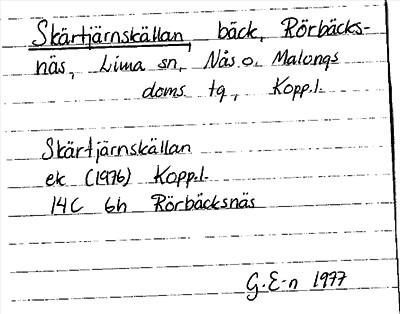 Skärtjärnskällan, bäck, Rörbäcks-
näs, Lima sn, Nås o. Malungs
doms. tg, Kopp.l.
Skärtjärnskällan
ek (1976) Kopp.l.
14C 6h Rörbäcksnäs
G.E-n 1977